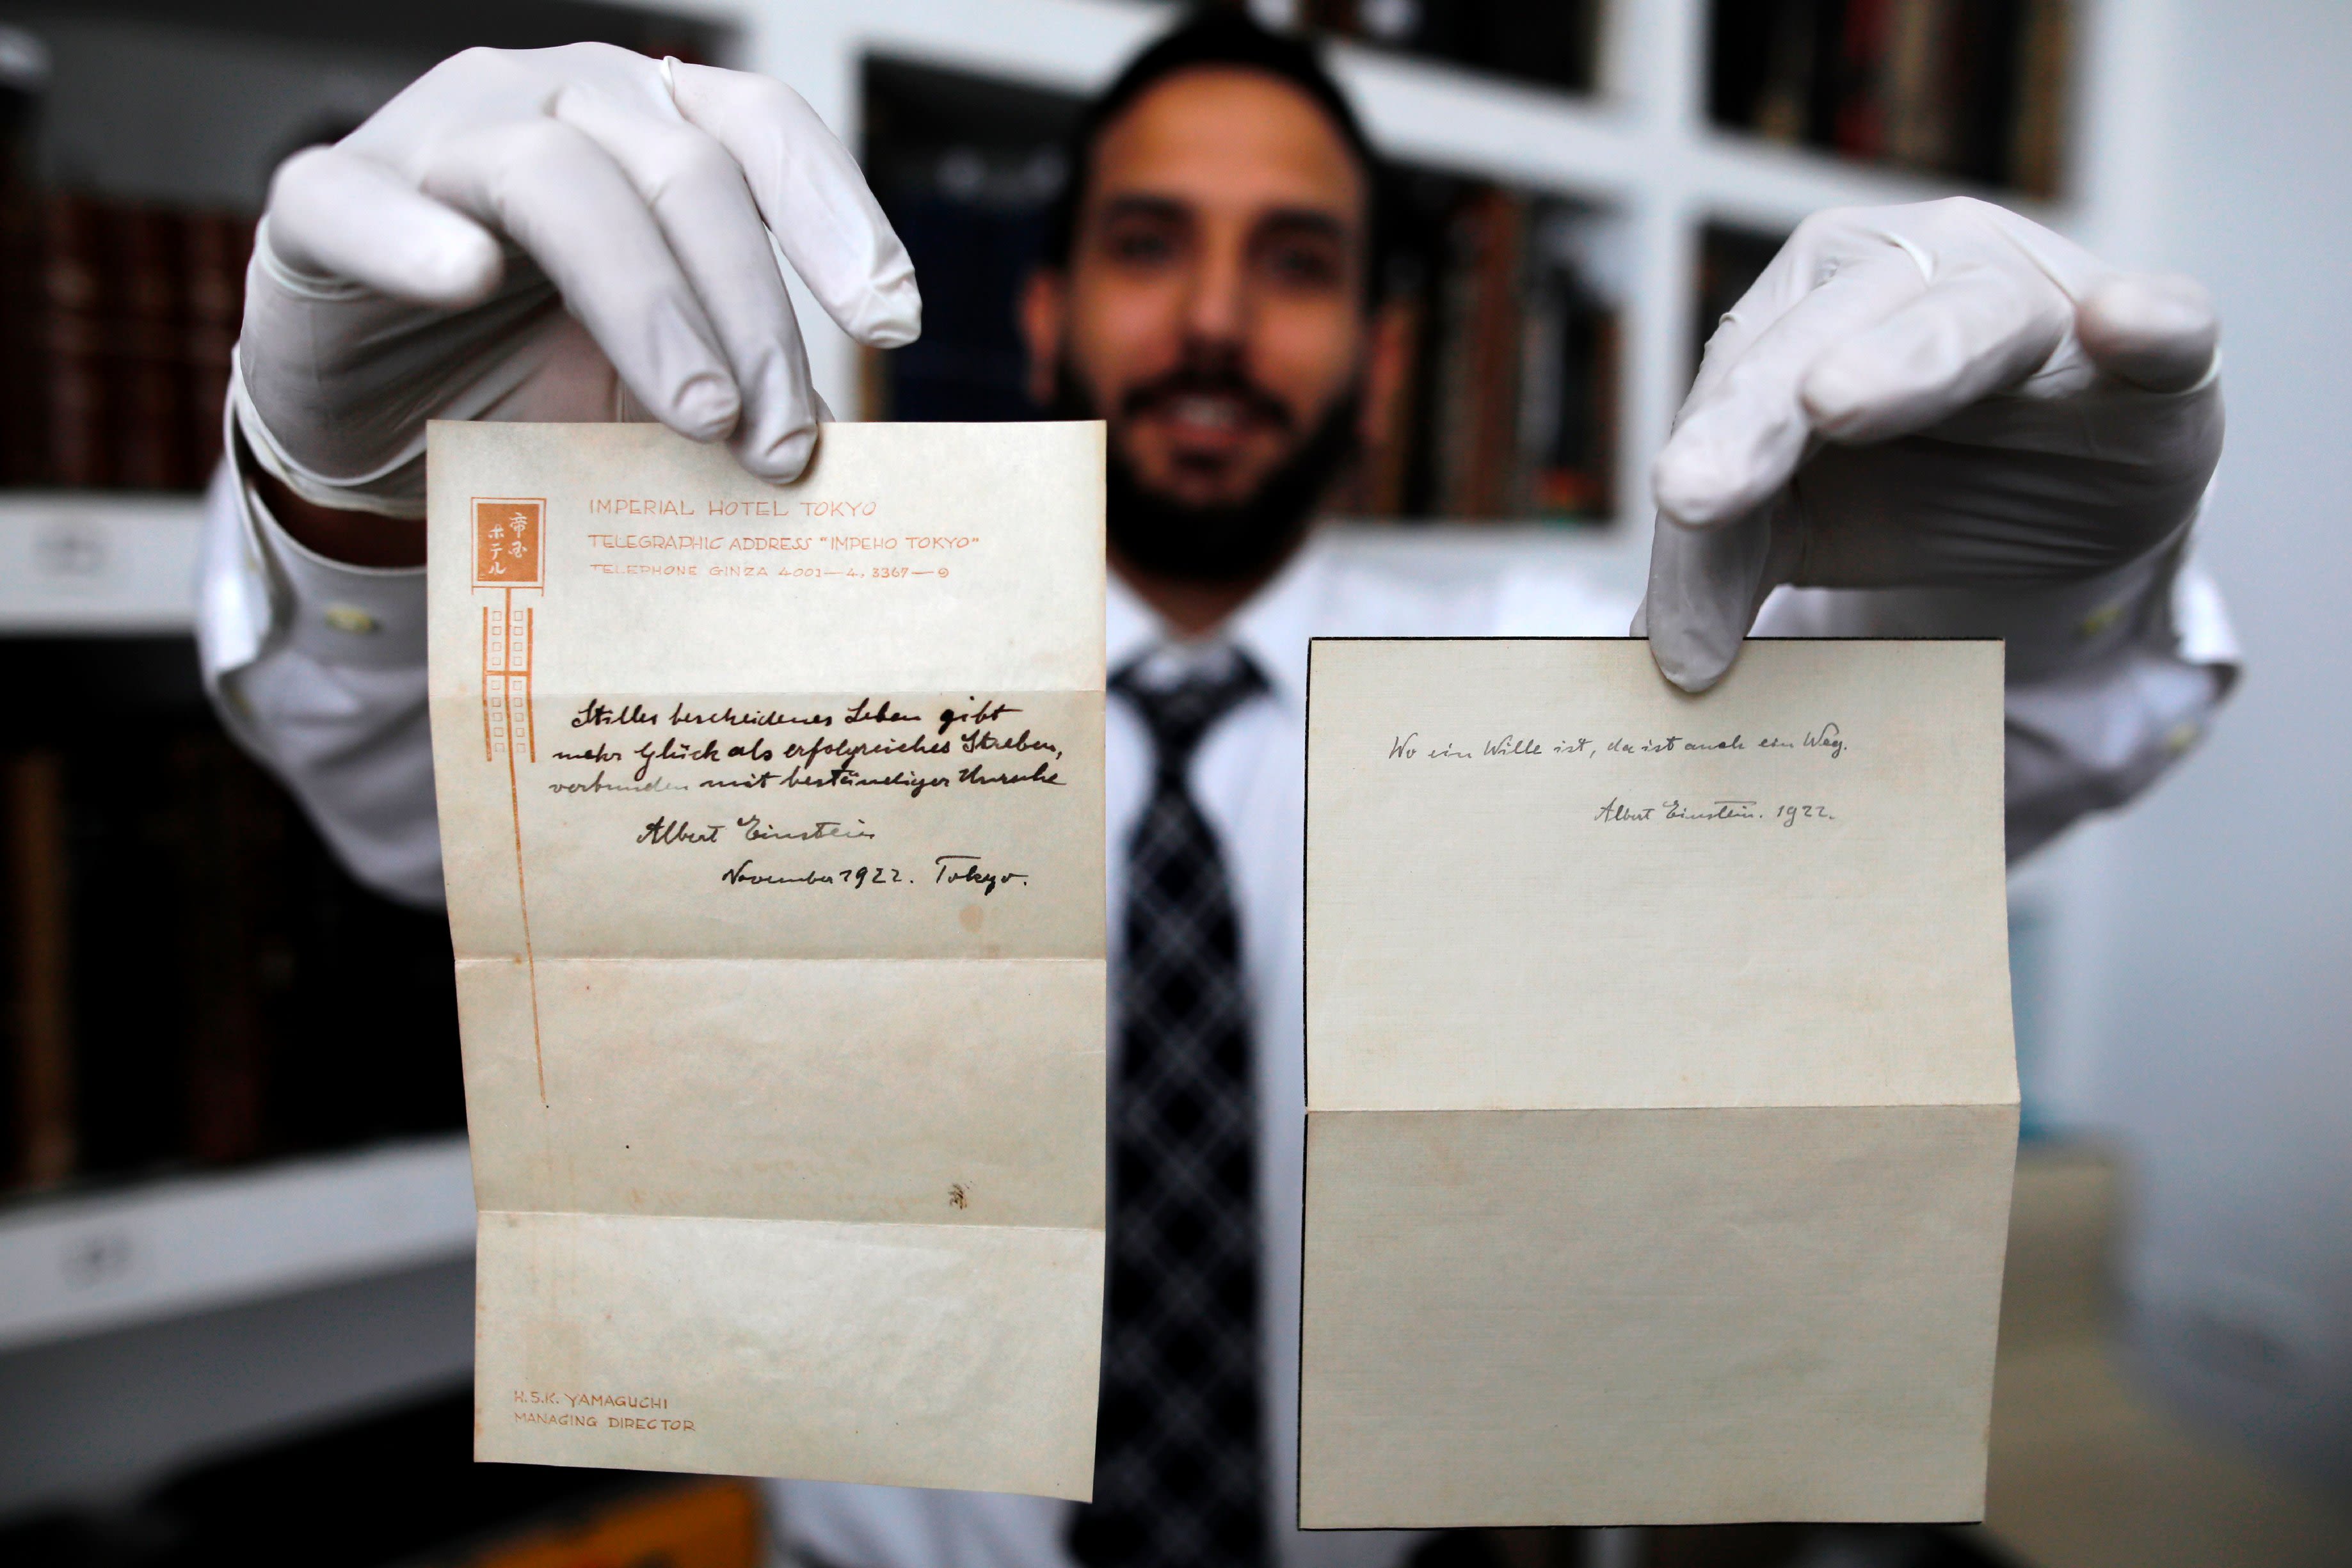 帝国
ホテル
IMPERIAL HOTEL TOKYO
TELEGRAPHIC ADDRESS "IMPEHO TOKYO"
TELEPHONE GINZA 4001—4, 3367—9
Stilles bescheidenes Leben gibt
mehr Glück als erfolgreiches Streben,
verbunden mit beständiger Unruhe
Albert Einstein
November 1922. Tokyo.
H.S.K. YAMAGUCHI
MANAGING DIRECTOR
Wo ein Wille ist, da ist auch ein Weg.
Albert Einstein. 1922.